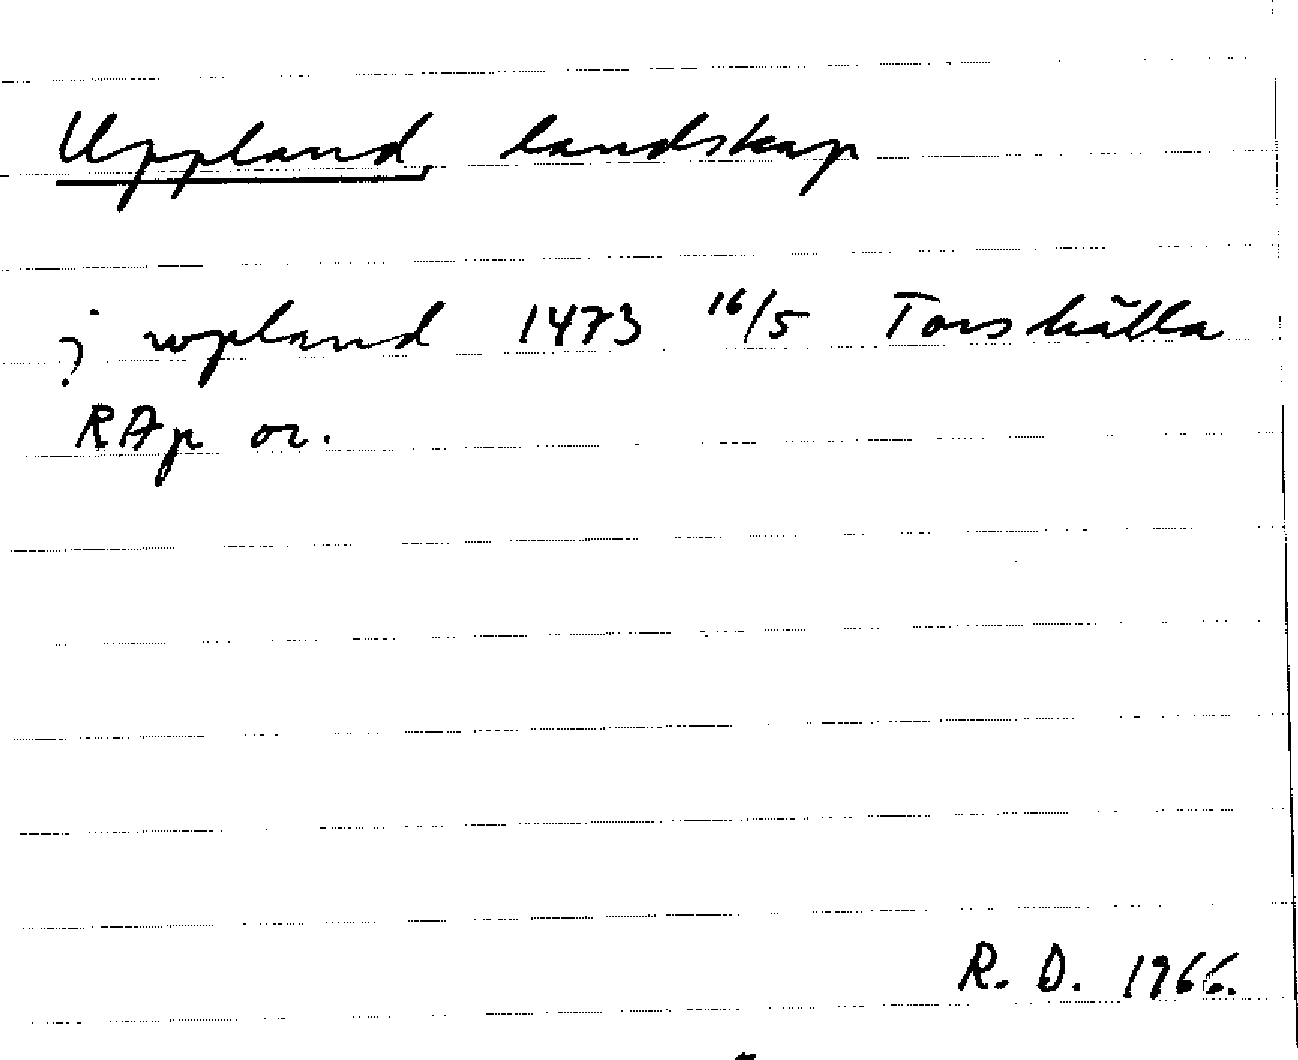 Uppland, landskap
j wpland 1473 16/5 Torshälla
RAp or.
R. D. 1966.